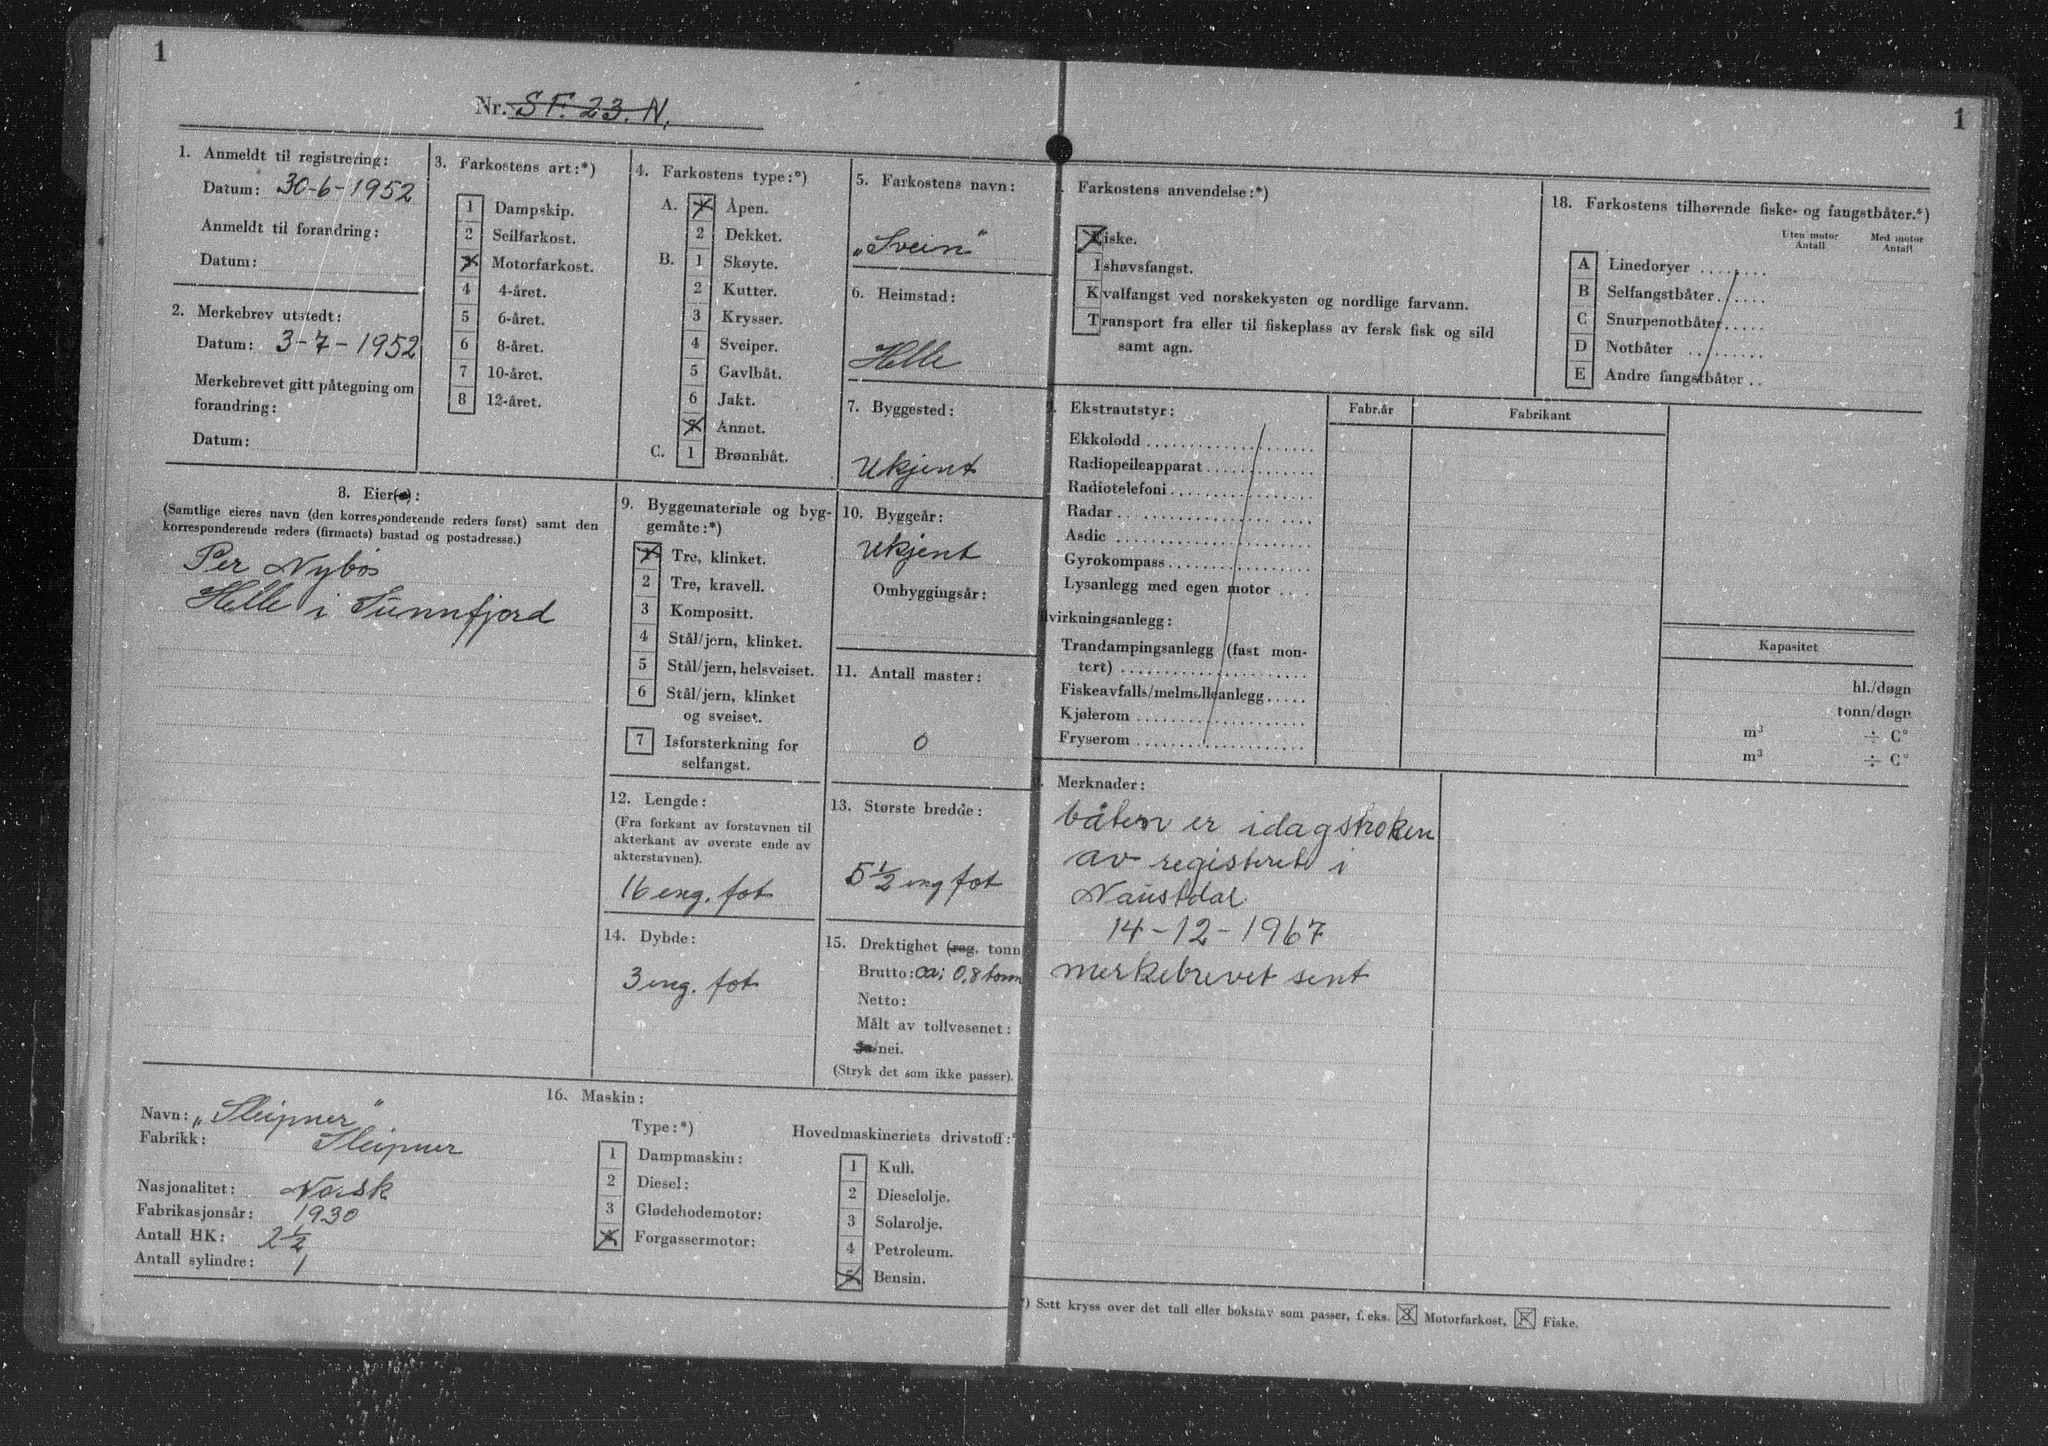 1
1
Nr. SF. 23. N.
1. Anmeldt til registrering:
Datum: 30-6-1952
Anmeldt til forandring:
Datum:
2. Merkebrev utstedt:
Datum: 3-7-1952
Merkebrevet gitt påtegning om
forandring:
Datum:
3. Farkostens art:*)
1 Dampskip.
2 Seilfarkost.
3 Motorfarkost.
4 4-året.
5 6-året.
6 8-året.
7 10-året.
8 12-året.
4. Farkostens type:*)
A. 1 Åpen.
2 Dekket.
B. 1 Skøyte.
2 Kutter.
3 Krysser.
4 Sveiper.
5 Gavlbåt.
6 Jakt.
7 Annet.
C. 1 Brønnbåt.
5. Farkostens navn:
„Svein"
6. Heimstad:
Helle
7. Byggested:
Ukjent
8. Eier(e):
(Samtlige eieres navn (den korresponderende reders først) samt den
korresponderende reders (firmaets) bustad og postadresse.)
Per Nybø
Helle i Sunnfjord
9. Byggemateriale og byg-
gemåte:*)
1 Tre, klinket.
2 Tre, kravell.
3 Kompositt.
4 Stål/jern, klinket.
5 Stål/jern, helsveiset.
6 Stål/jern, klinket
og sveiset.
7 Isforsterkning for
selfangst.
10. Byggeår:
Ukjent
Ombyggingsår:
11. Antall master:
0
12. Lengde:
(Fra forkant av forstavnen til
akterkant av øverste ende av
akterstavnen).
16 eng. fot
13. Største bredde:
5 1/2 eng fot
14. Dybde:
3 eng. fot
15. Drektighet (reg. tonn
Brutto: ca; 0,8 tonn
Netto:
Målt av tollvesenet:
Ja/nei.
(Stryk det som ikke passer).
16. Maskin:
Navn: „Sleipner"
Fabrikk: Sleipner
Nasjonalitet: Norsk
Fabrikasjonsår: 1930
Antall HK: 2 1/2
Antall sylindre: 1
Type:*)
1 Dampmaskin:
2 Diesel:
3 Glødehodemotor:
4 Forgassermotor:
Hovedmaskineriets drivstoff:*
1 Kull.
2 Dieselolje.
3 Solarolje.
4 Petroleum.
5 Bensin.
Farkostens anvendelse:*)
Fiske.
Ishavsfangst.
Kvalfangst ved norskekysten og nordlige farvann.
Transport fra eller til fiskeplass av fersk fisk og sild
samt agn.
18. Farkostens tilhørende fiske- og fangstbåter.*)
Uten motor Med motor
Antall Antall
A Linedoryer
B Selfangstbåter
C Snurpenotbåter
D Notbåter
E Andre fangstbåter
Ekstrautstyr: Fabr.år Fabrikant
Ekkolodd
Radiopeileapparat
Radiotelefoni
Radar
Asdic
Gyrokompass
Lysanlegg med egen motor
ilvirkningsanlegg: Kapasitet
Trandampingsanlegg (fast mon-
tert) hl./døgn
Fiskeavfalls/melmølleanlegg tonn/døgn
Kjølerom m³ ÷ C°
Fryserom m³ ÷ C°
Merknader:
båten er idag stroken
av registeret i
Naustdal
14-12-1967
merkebrevet sent
*) Sett kryss over det tall eller bokstav som passer, f. eks. 3 Motorfarkost, F Fiske.